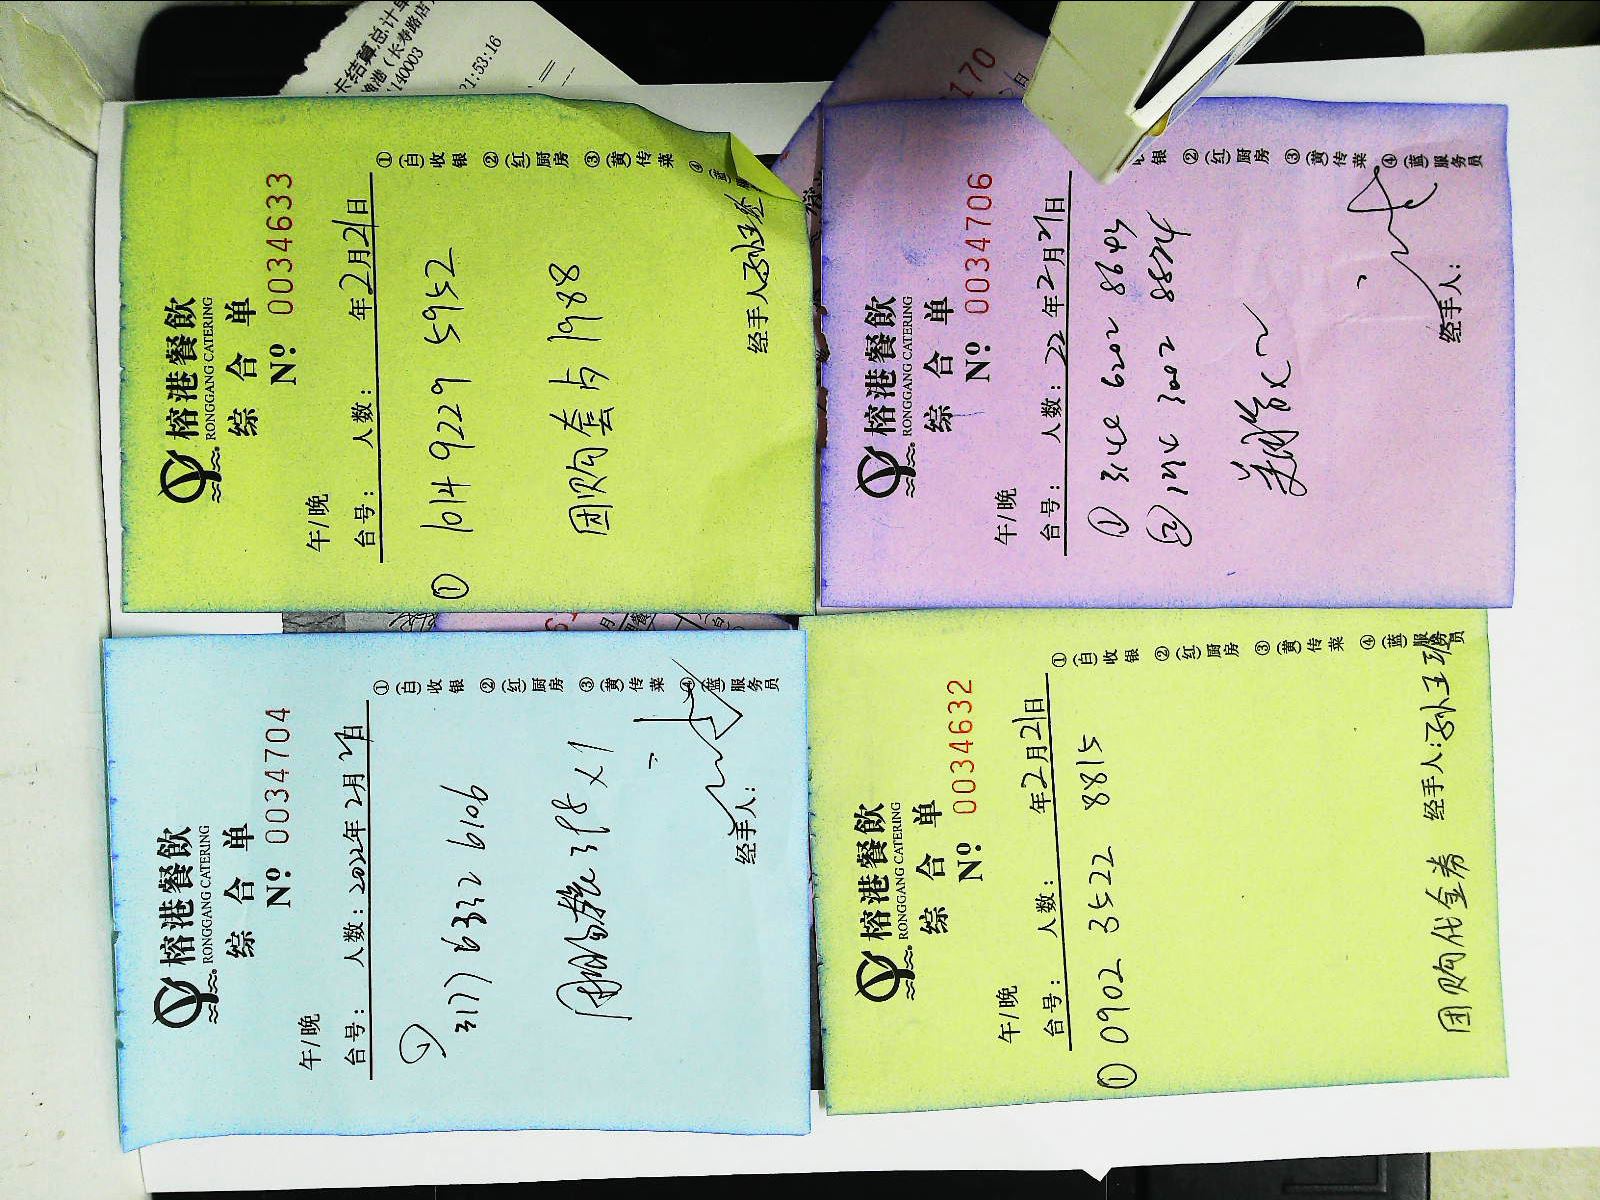 卡结算总计单
港(长寿路店)
140003
21:53:16
榕港餐飲
RONGGANG CATERING
综合单
Nº: 0034633
午/晚
台号: 人数: 年2月21日
① 1014 9229 5952
团购套占1988
经手人
①(白)收银 ②(红)厨房 ③(黄)传菜 ④
170
榕港餐飲
RONGGANG CATERING
综合单
Nº: 0034706
午/晚
台号: 人数: 22年2月21日
6202 8643
3002 8824
经手人:
银 ②(红)厨房 ③(黄)传菜 ④(蓝)服务员
榕港餐飲
RONGGANG CATERING
综合单
Nº: 0034704
午/晚
台号: 人数: 2022年2月21日
① 3177 6332 6106
398×1
经手人:
①(白)收银 ②(红)厨房 ③(黄)传菜 ④(蓝)服务员
榕港餐飲
RONGGANG CATERING
综合单
Nº: 0034632
午/晚
台号: 人数: 年2月21日
① 0902 3522 8815
团购代金券 经手人:
①(白)收银 ②(红)厨房 ③(黄)传菜 ④(蓝)服务员